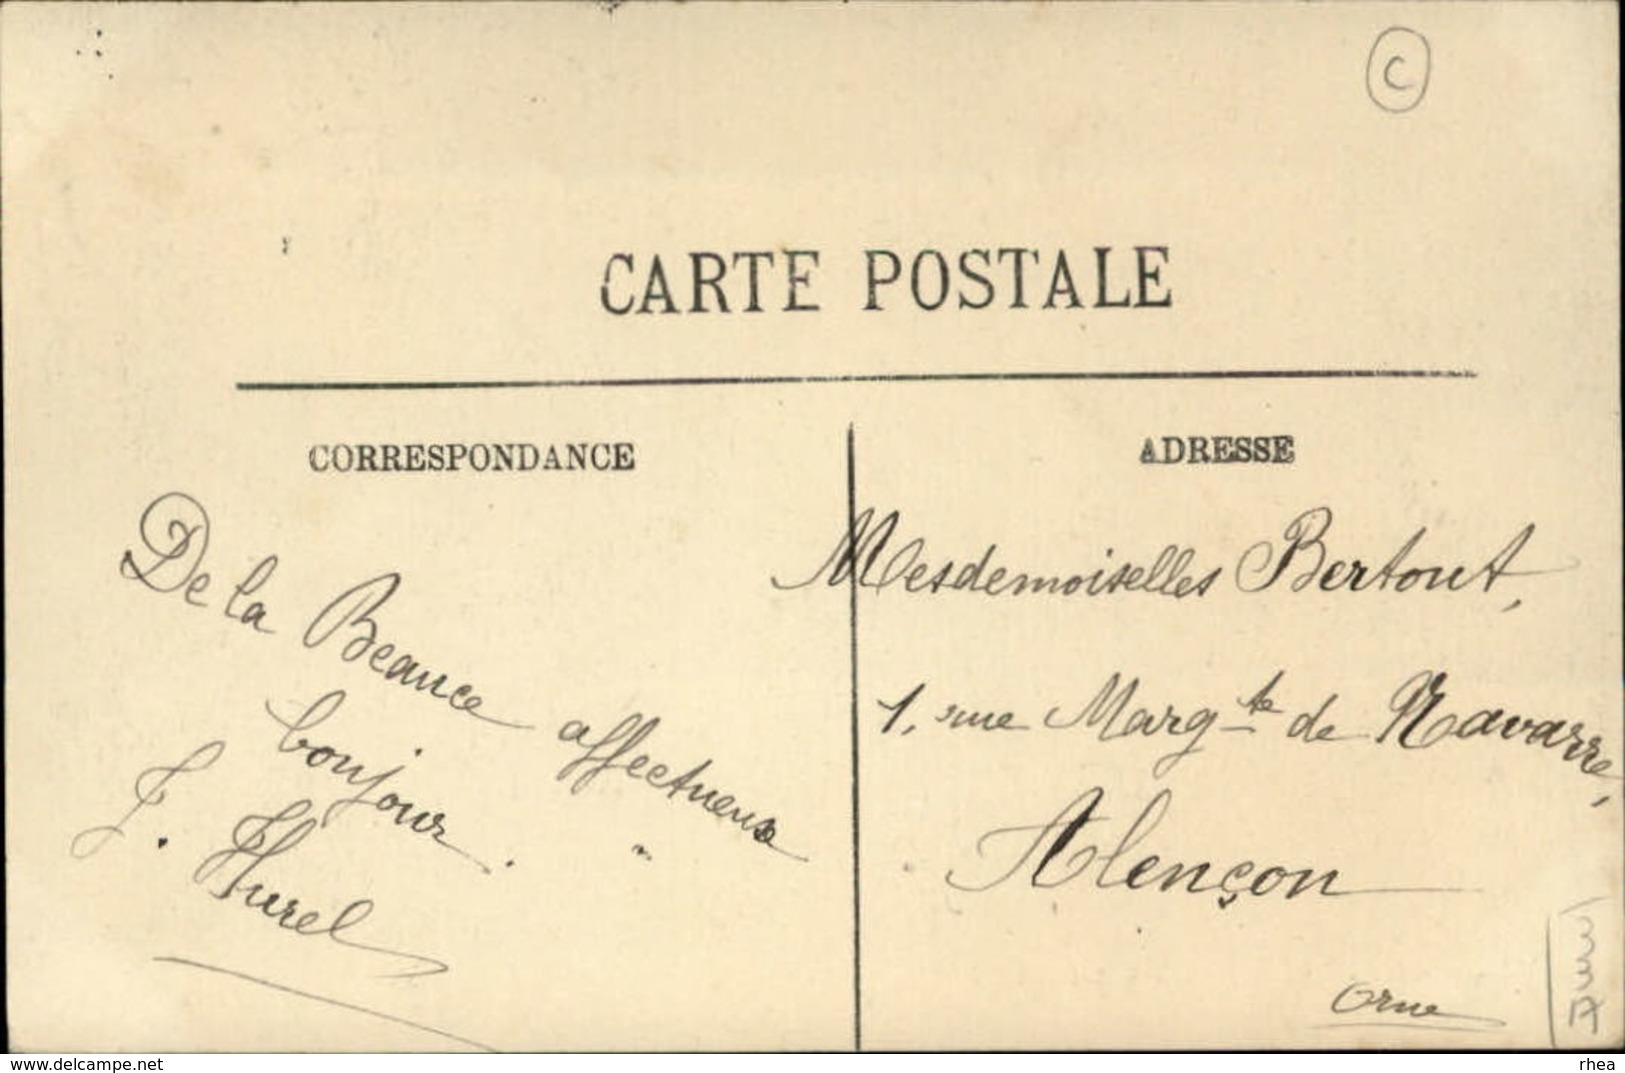 C
CARTE POSTALE
CORRESPONDANCE
De la Beauce affectueux
bonjour.
J. Hurel
ADRESSE
Mesdemoiselles Bertout,
1, rue Marg-te de Navarre,
Alençon
Orne
delcampe.net
rhea